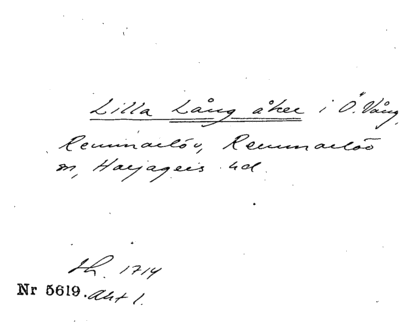 Lilla Lång åker i Ö. Vång,
Remmarlöv, Remmarlöv
sn, Harjagers hd.
Lh. 1714
Nr 5619. Akt 1.